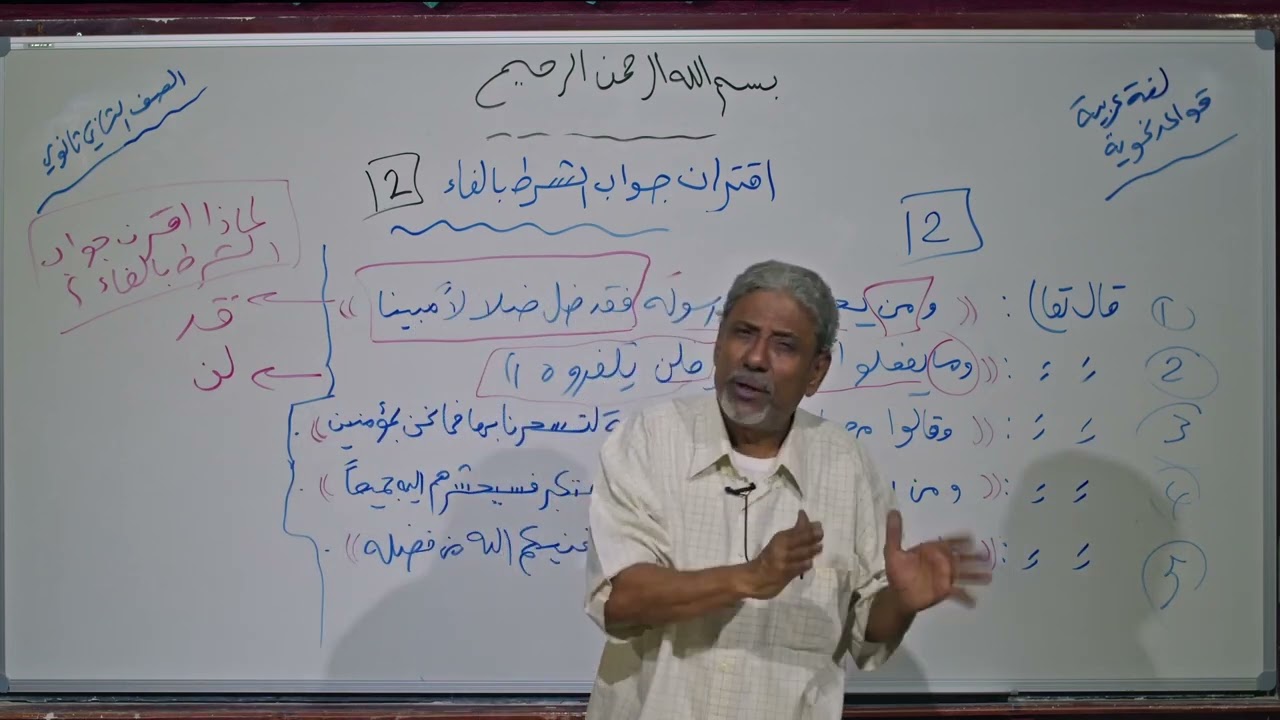 بسم الله الرحمن الرحيم
لغة عربية
قواعد نحوية
الصف الثاني ثانوي
اقتران جواب الشرط بالفاء 2
2
لماذا اقترن جواب
الشرط بالفاء ؟
1 قال تعالى : (( ومن يعـ رسوله فقد ضل ضلالاً مبينا )) ← قد
2 〃 〃 : (( وما يفعلوا فلن يكفروه )) ← لن
3 〃 〃 : (( وقالوا مهـ لتسحرنا بها فما نحن بمؤمنين ))
4 〃 〃 : (( ومن ـستكبر فسيحشرهم إليه جميعاً ))
5 〃 〃 : (( ـغنيكم الله من فضله ))